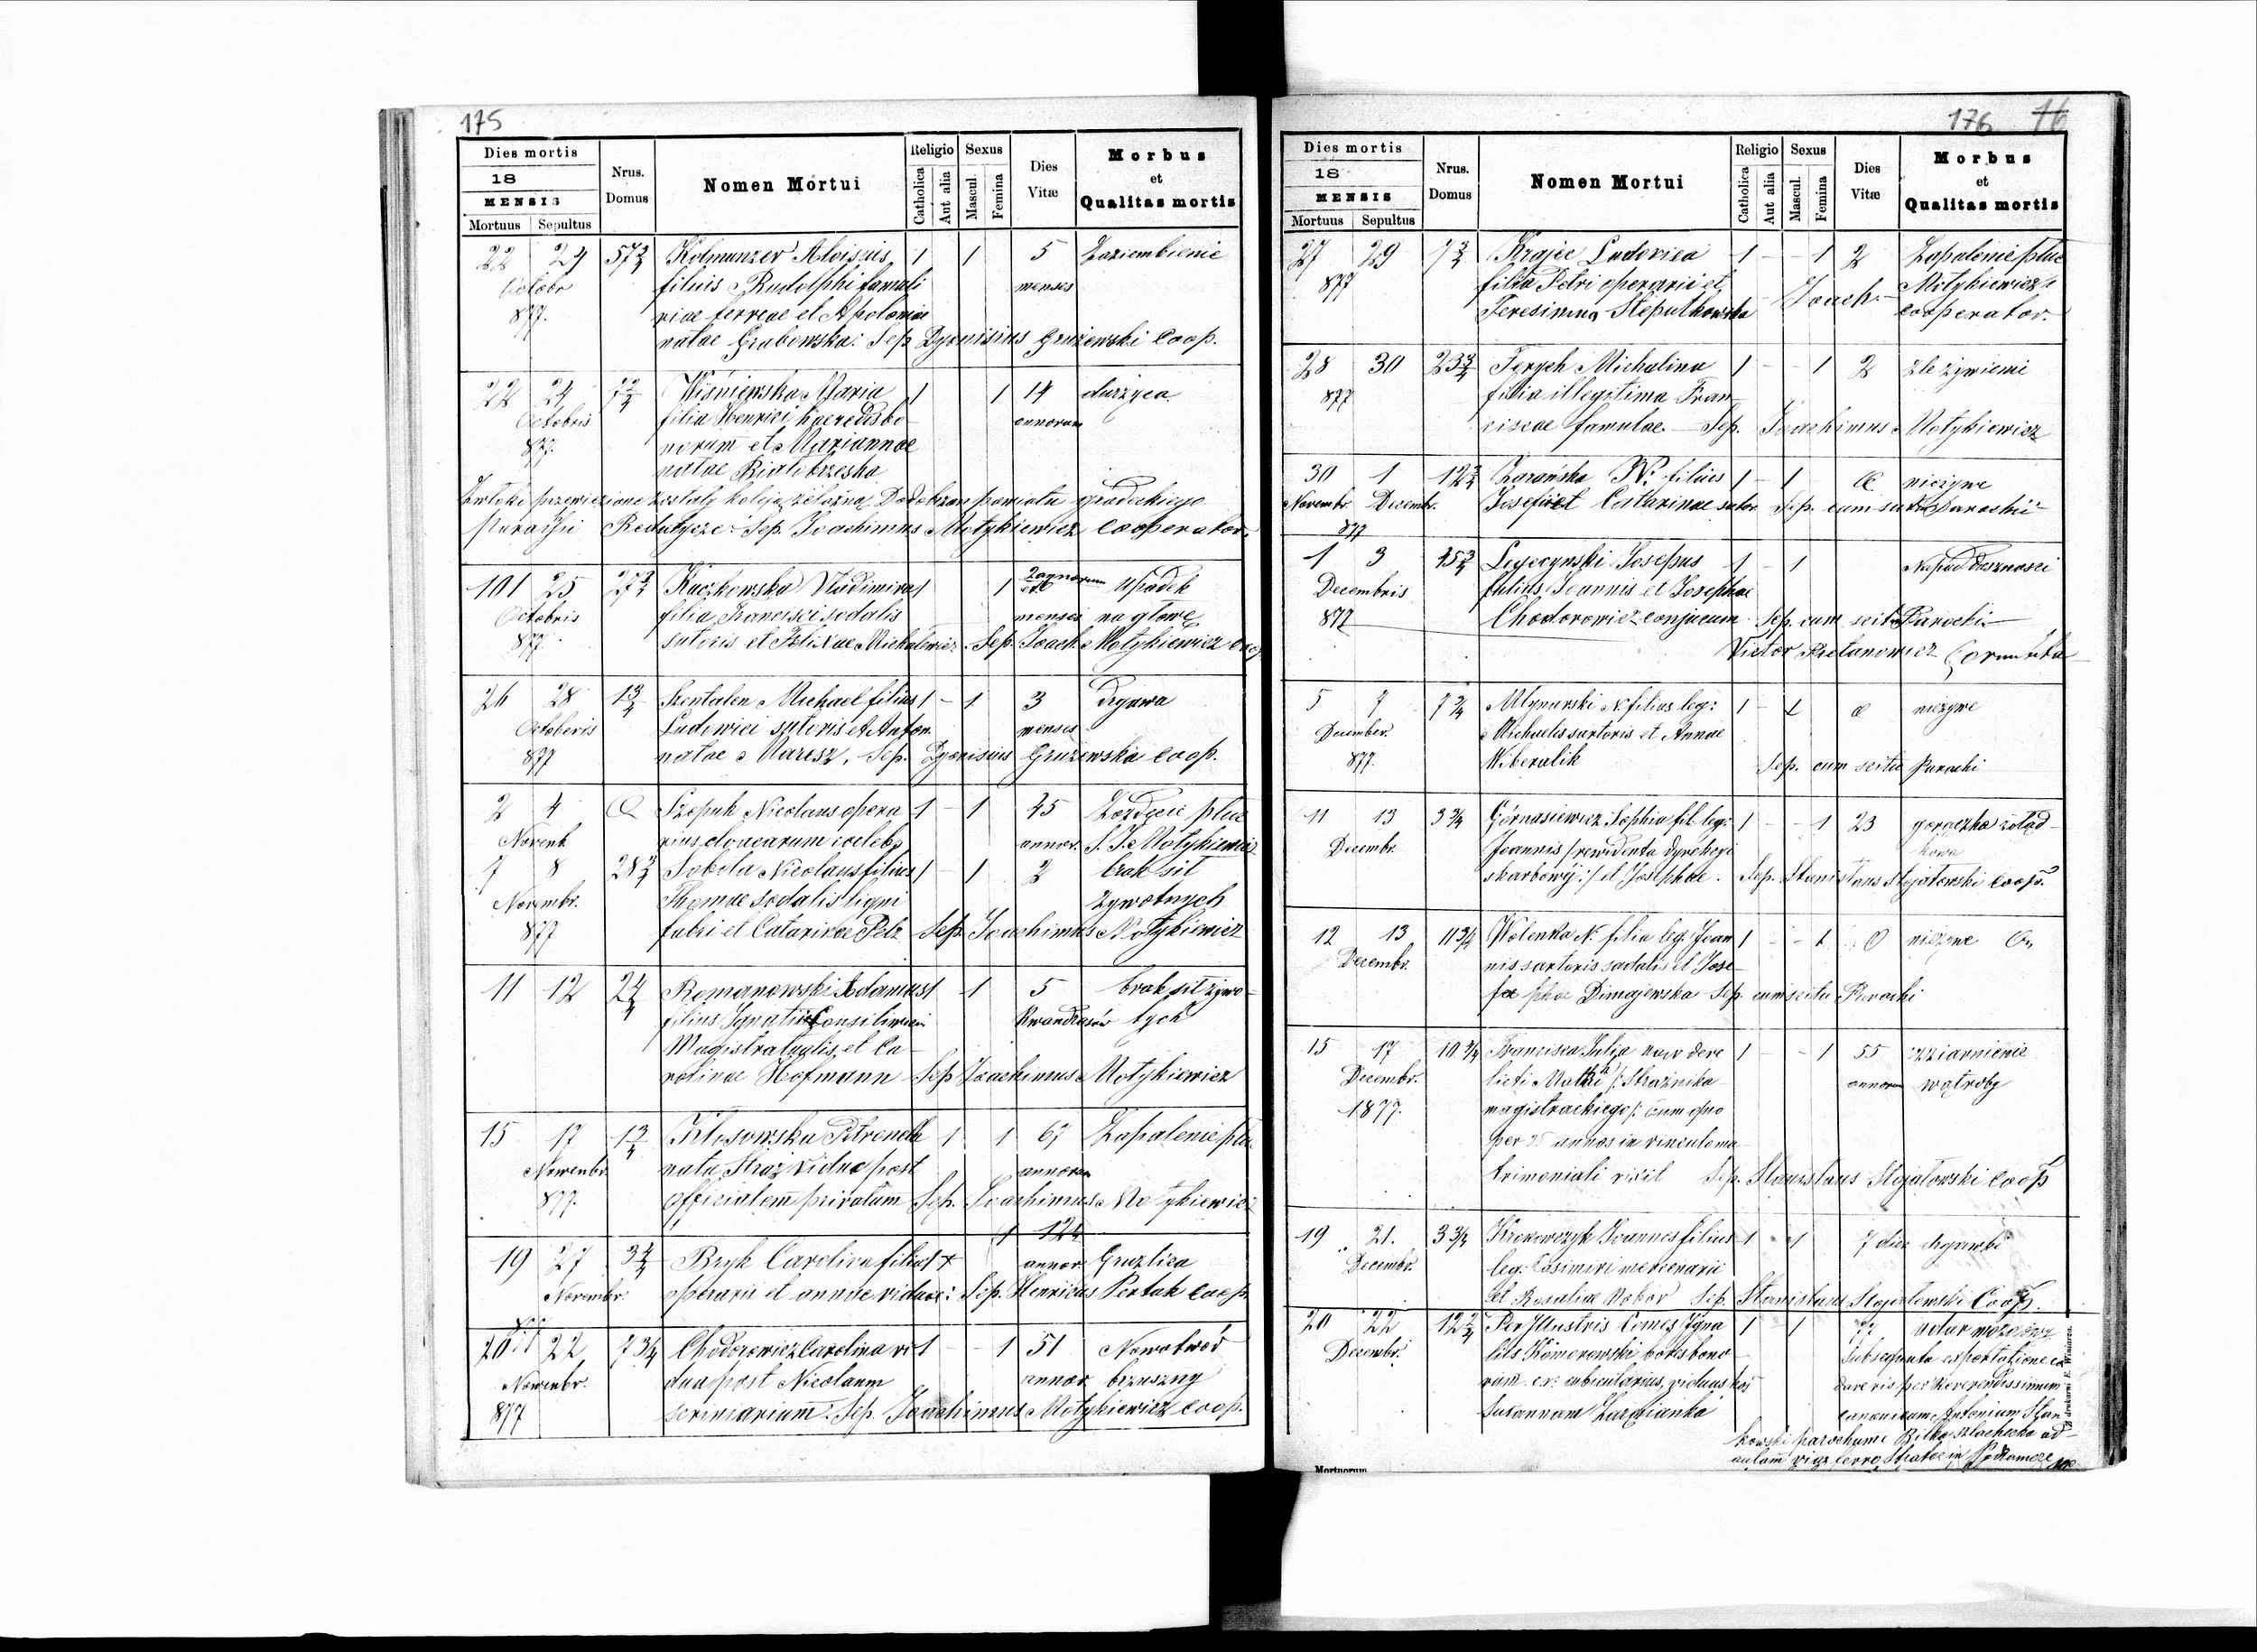 175
Dies mortis
18
MENSIS
Mortuus Sepultus
Nrus. Domus
Nomen Mortui
Religio
Catholica
Aut alia
Sexus
Mascul.
Femina
Dies Vitæ
Morbus et Qualitas mortis
22 24 57 3/4 Kolmunzer Aloisius 1 1 5 Zaziembienie
Octobr filius Rudolphi famuli menses
877. viae ferreae et Apoloniae
natae Grabowska: Sep Dyonisius Gruzewski Coop.
22 24 7 2/4 Wiśniewska Maria 1 1 14 durzyca
Octobris filia Henrici haeredis bo annorum
877. norum et Mariannae
natae Białobrzeska
Zwłoki przewiezione zostały koleją żelazną powiatu gródeckiego
Sep. Joachimus Motykiewicz Cooperator
101 25 27 3/4 Kuczkowska Vladimira 1 1 2 annorum Upadek
Octobris filia Francisci sodalis menses na głowę
877. sutoris et Felixae Michalewicz Sep. Joach. Motykiewicz
26 28 13/4 Szentalen Michael filius 1 - 1 3 Drgawa
Octoberis Ludovici sutoris et Anton. menses
877 natae Maresz, Sep. Dyonisius Gruzewski Coop.
2 4 Szepuk Nicolaus opera 1 1 45 Zozdęcie płuc
Novemb. rius cloacarum coelebs annor. S. J. Motykiewicz
7 8 28 3/4 Sobola Nicolaus filius 1 - 1 2 brak sił
Novembr. Thomae sodalis ligni żywotnych
877 fabri et Catarinae Pelz Sep. Joachimus Motykiewicz
11 12 24/4 Romanowski Adamus 1 1 5 brak sił żywo-
filius Ignatii Consiliarii Kwandrasów tych
Magistratualis, et Ca-
rolinae Hofmann Sep Joachimus Motykiewicz
15 17 13/4 Kłosowska Petronela 1 1 67 Zapalenie płu
Novembr. nata Straż vidua post annorum
877. officialem privatum Sep. Joachimus Motykiewicz
1 12
19 27 3 3/4 Bryk Carolina filia annor Gruzlica
Novembr. operarii et annae viduae: Sep. Henricus Pertak Coop.
877
20 22 7 3/4 Chodorowicz Carolina vi- 1 - - 1 51 Nowotwór
Novembr. dua post Nicolaum annor brzuszny
877 scriniarium: Sep. Joachimus Motykiewicz coop.
176 76
Dies mortis
18
MENSIS
Mortuus Sepultus
Nrus. Domus
Nomen Mortui
Religio
Catholica
Aut alia
Sexus
Mascul.
Femina
Dies Vitæ
Morbus et Qualitas mortis
27 29 7 3/4 Krajec Ludovica 1 - - 1 2 Zapalenie płuc
877 filia Petri operarii et Joach. Motykiewicz
cooperator.
28 30 23 3/4 Ferych Michalina 1 - 1 2 złe żywieni
877 filia illegitima Fran-
ciscae famulae. Sep. Joachimus Motykiewicz
30 1 12 3/4 Zarańska N. filius 1 - 1 nieżywe
Novembr. Decembr. Josefi et Catarinae Sep. cum scitu Parochi
877
1 3 45 3/4 Josepus 1 - 1 Napad duszności
Decembris filius Joannis et Josephae
877 Chodorowicz conjucum Sep. cum scitu Parochi
Victor
5 7 7 3/4 Młynarski N filius leg: 1 - 1 nieżywe
December. Michaelis sartoris et Annae
877. Wiberalik Sep. cum scitu Parochi
11 13 3 3/4 Górnasiewicz Sophia fil. leg: 1 - - 1 23 gorączka żołąd-
Decembr. Joannis /:rewidenta dyrekcyi kowa
skarbowej:/ et Josephae. Sep. Stanislaus Stojałowski Coop.
12 13 11 3/4 Wolenka N. filia leg. Joan 1 - - 1 0 nieżywe
Decembr. nis sartoris sodalis et Jose-
phae Dimajewska Sep. cum scitu Parochi
15 17 10 3/4 Francisca Julia uxor dere 1 - - 1 55 zziarnienie
Decembr. licti /:Strażnika annorum wątroby
1877. magistrackiego/: cum quo
per 35 annos in vinculo ma-
trimoniali vixit Sep. Stanislaus Stojałowski Coop
19 21. 3 3/4 Krokowczyk Joannes filius 1 - 1 7 dies drgawki
Decembr. leg. Casimiri mercenarii
et Rosaliae Sep. Stanislaus Stojałowski Coop.
20 22 12 3/4 Per Illustris Comes Igna 1 1 77 udar mózgowy
Decembr. tius Komorowski bono subsequuta exportatione ca-
rum. cubicularius, viduus daveris per Reverendissimum
Susannam canonicum Antonium Stan-
kowski parochum Biłka szlachecka ad-
Mortuorum
Z drukarni E. Winiarza.